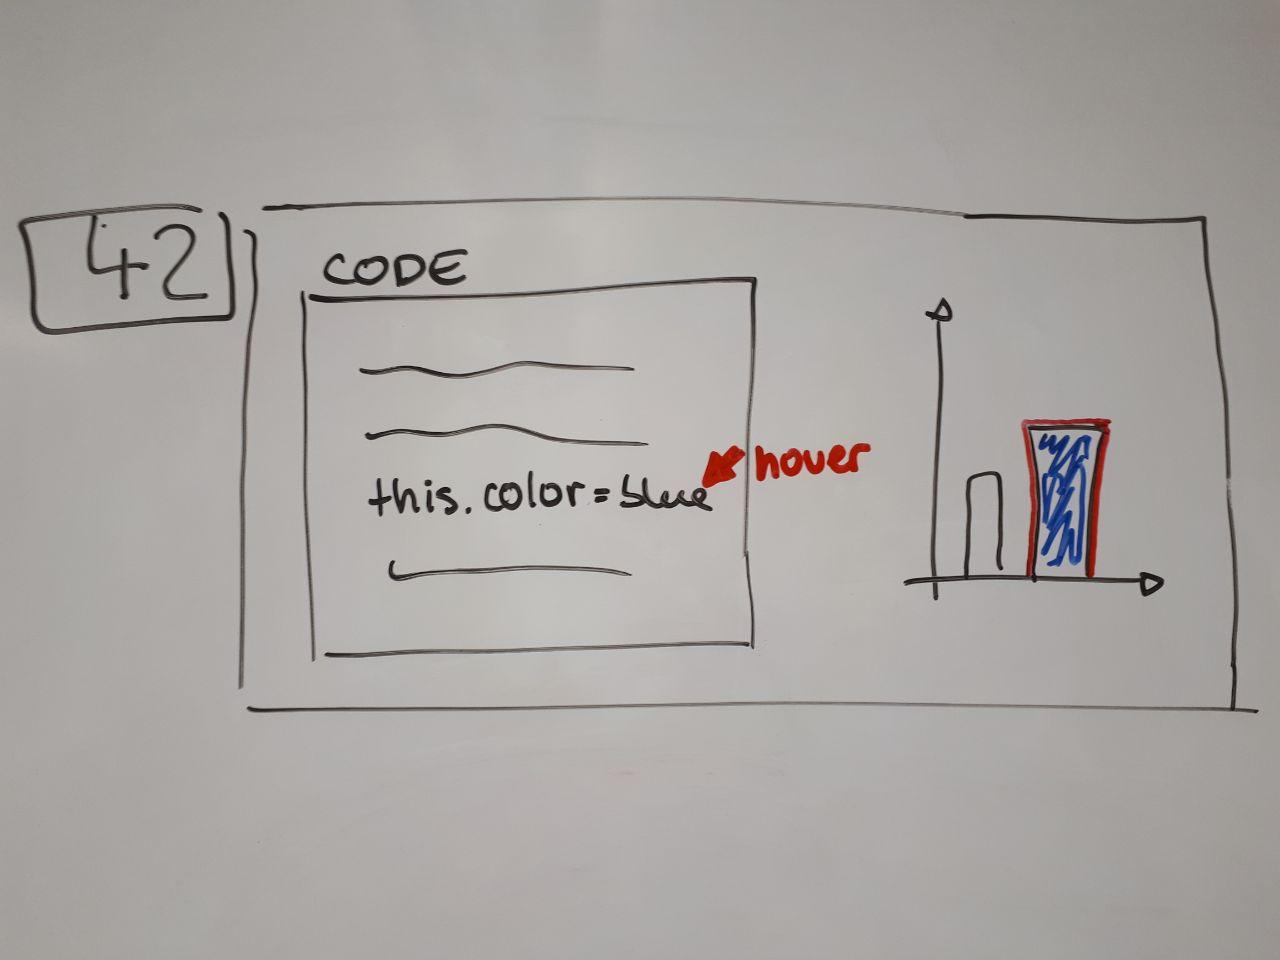 42
CODE
this.color=blue
hover